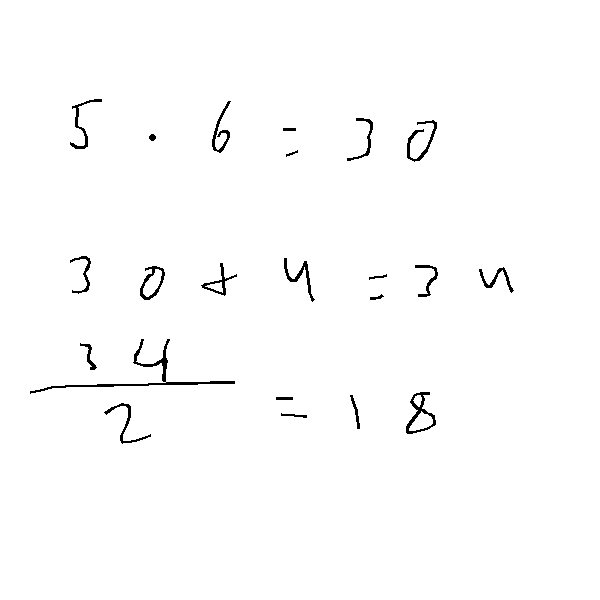 5 · 6 = 30
30 + 4 = 34
34/2 = 18